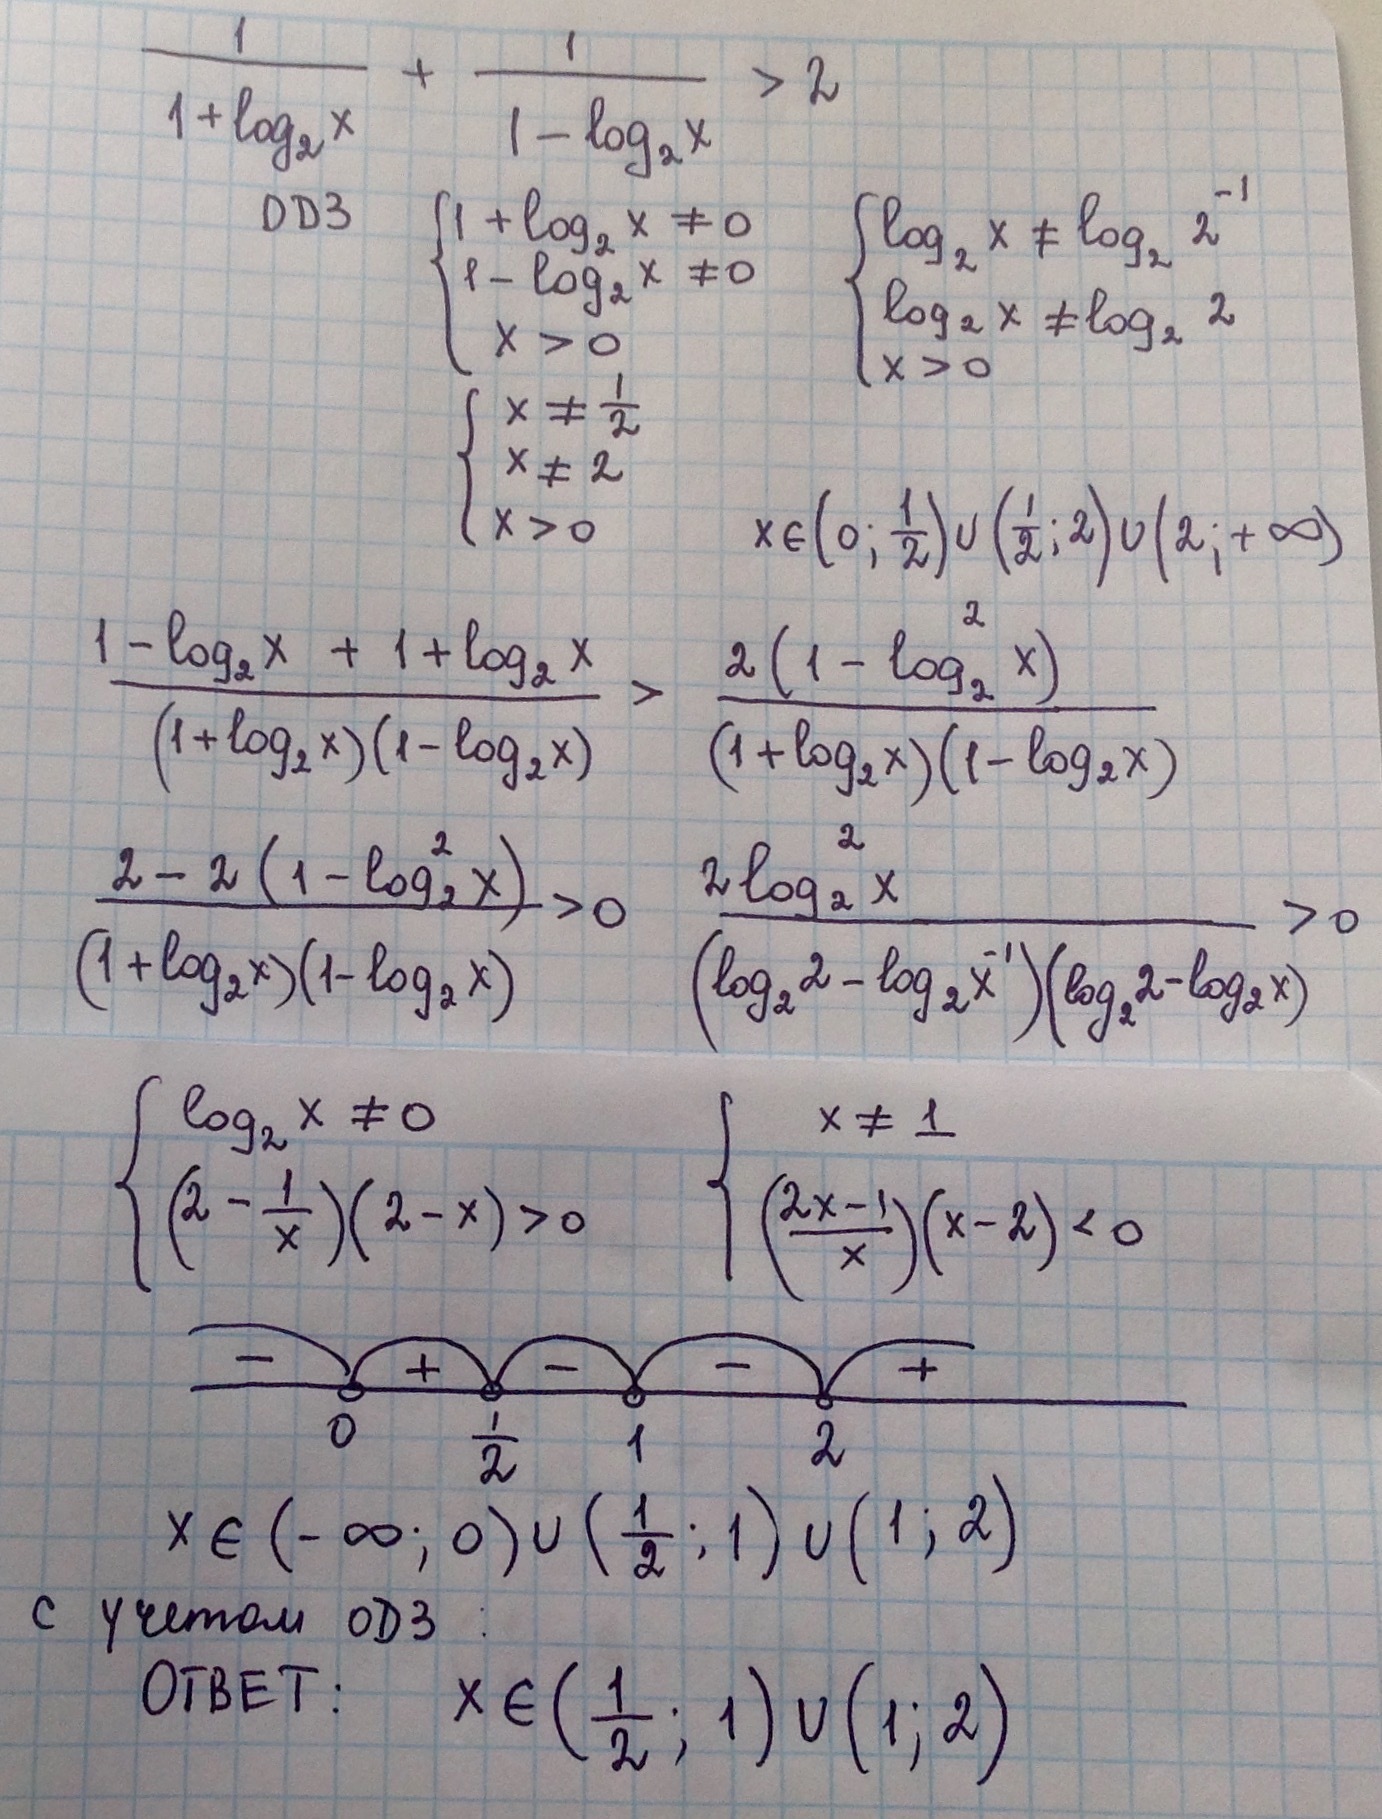 1/(1+log₂x) + 1/(1-log₂x) > 2
ОДЗ { 1+log₂x ≠ 0 { log₂x ≠ log₂2⁻¹
1-log₂x ≠ 0 log₂x ≠ log₂2
x > 0 x > 0
{ x ≠ 1/2
x ≠ 2
x > 0 x∈(0; 1/2)∪(1/2; 2)∪(2; +∞)
(1-log₂x + 1+log₂x)/((1+log₂x)(1-log₂x)) > 2(1-log₂²x)/((1+log₂x)(1-log₂x))
(2-2(1-log₂²x))/((1+log₂x)(1-log₂x)) > 0 2log₂²x/((log₂2-log₂x⁻¹)(log₂2-log₂x)) > 0
{ log₂x ≠ 0 { x ≠ 1
(2-1/x)(2-x) > 0 ((2x-1)/x)(x-2) < 0
- + - - +
0 1/2 1 2
x∈(-∞; 0)∪(1/2; 1)∪(1; 2)
с учетом ОДЗ :
ОТВЕТ: x∈(1/2; 1)∪(1; 2)